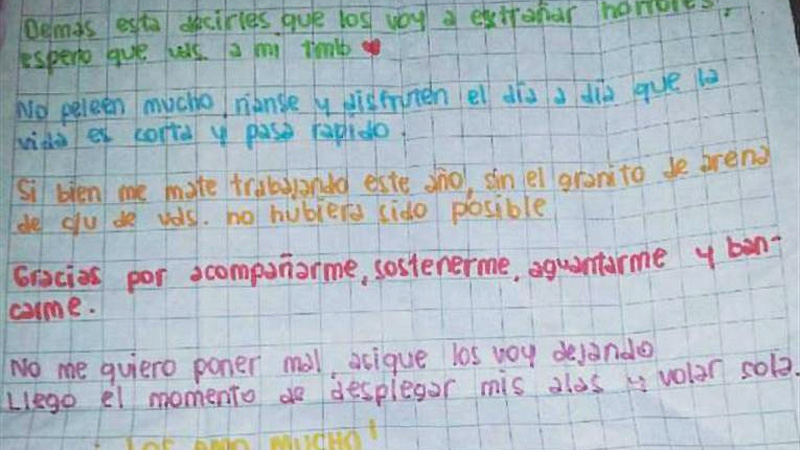 Demas esta decirles que los voy a extrañar horrores,
espero que uds. a mi tmb ❤
No peleen mucho, rianse y disfruten el dia a dia que la
vida es corta y pasa rapido.
Si bien me mate trabajando este año, sin el granito de arena
de c/u de uds. no hubiera sido posible
Gracias por acompañarme, sostenerme, aguantarme y ban-
carme.
No me quiero poner mal, asique los voy dejando
Llego el momento de desplegar mis alas y volar sola.
LOS AMO MUCHO!